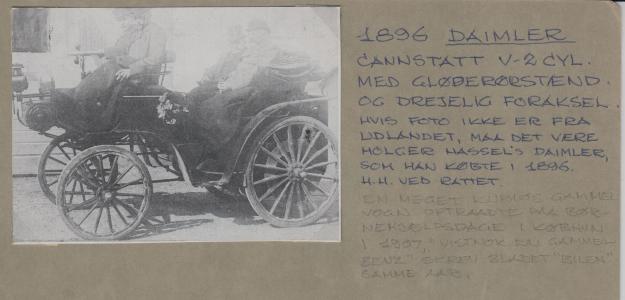 1896 DAIMLER
CANNSTATT V-2 CYL.
MED GLØDERØRSTÆND.
OG DREJELIG FORAKSEL.
HVIS FOTO IKKE ER FRA
UDLANDET, MAA DET VERE
HOLGER HASSEL'S DAIMLER,
SOM HAN KØBTE I 1896.
H.H. VED RATTET.
EN MEGET KURIØS GAMMEL
VOGN OPTRAADTE PAA BØR-
NEHJÆLPSDAGE I KØBHVN
I 1907, "VISTNOK EN GAMMEL
BENZ" SKREV BLADET "BILEN"
SAMME AAR.